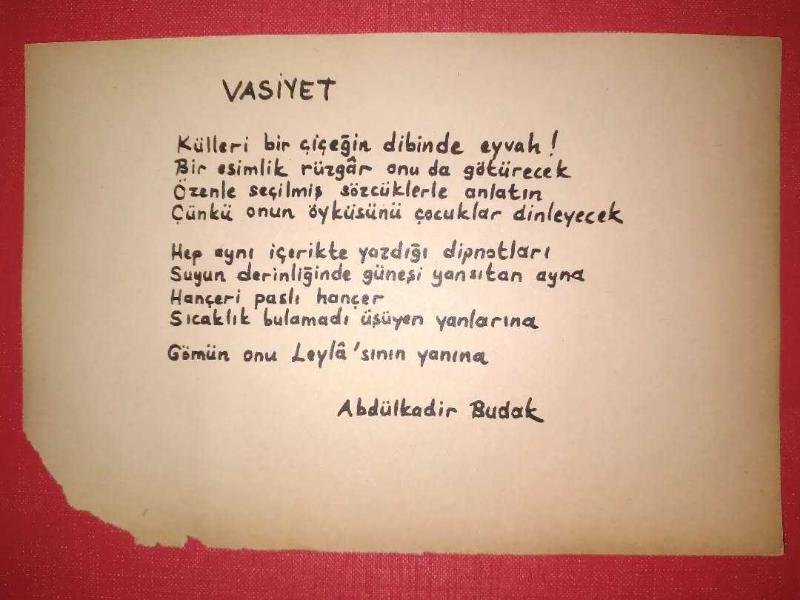 VASİYET
Külleri bir çiçeğin dibinde eyvah!
Bir esimlik rüzgâr onu da götürecek
Özenle seçilmiş sözcüklerle anlatın
Çünkü onun öyküsünü çocuklar dinleyecek
Hep aynı içerikte yazdığı dipnotları
Suyun derinliğinde güneşi yansıtan ayna
Hançeri paslı hançer
Sıcaklık bulamadı üşüyen yanlarına
Gömün onu Leylâ'sının yanına
Abdülkadir Budak